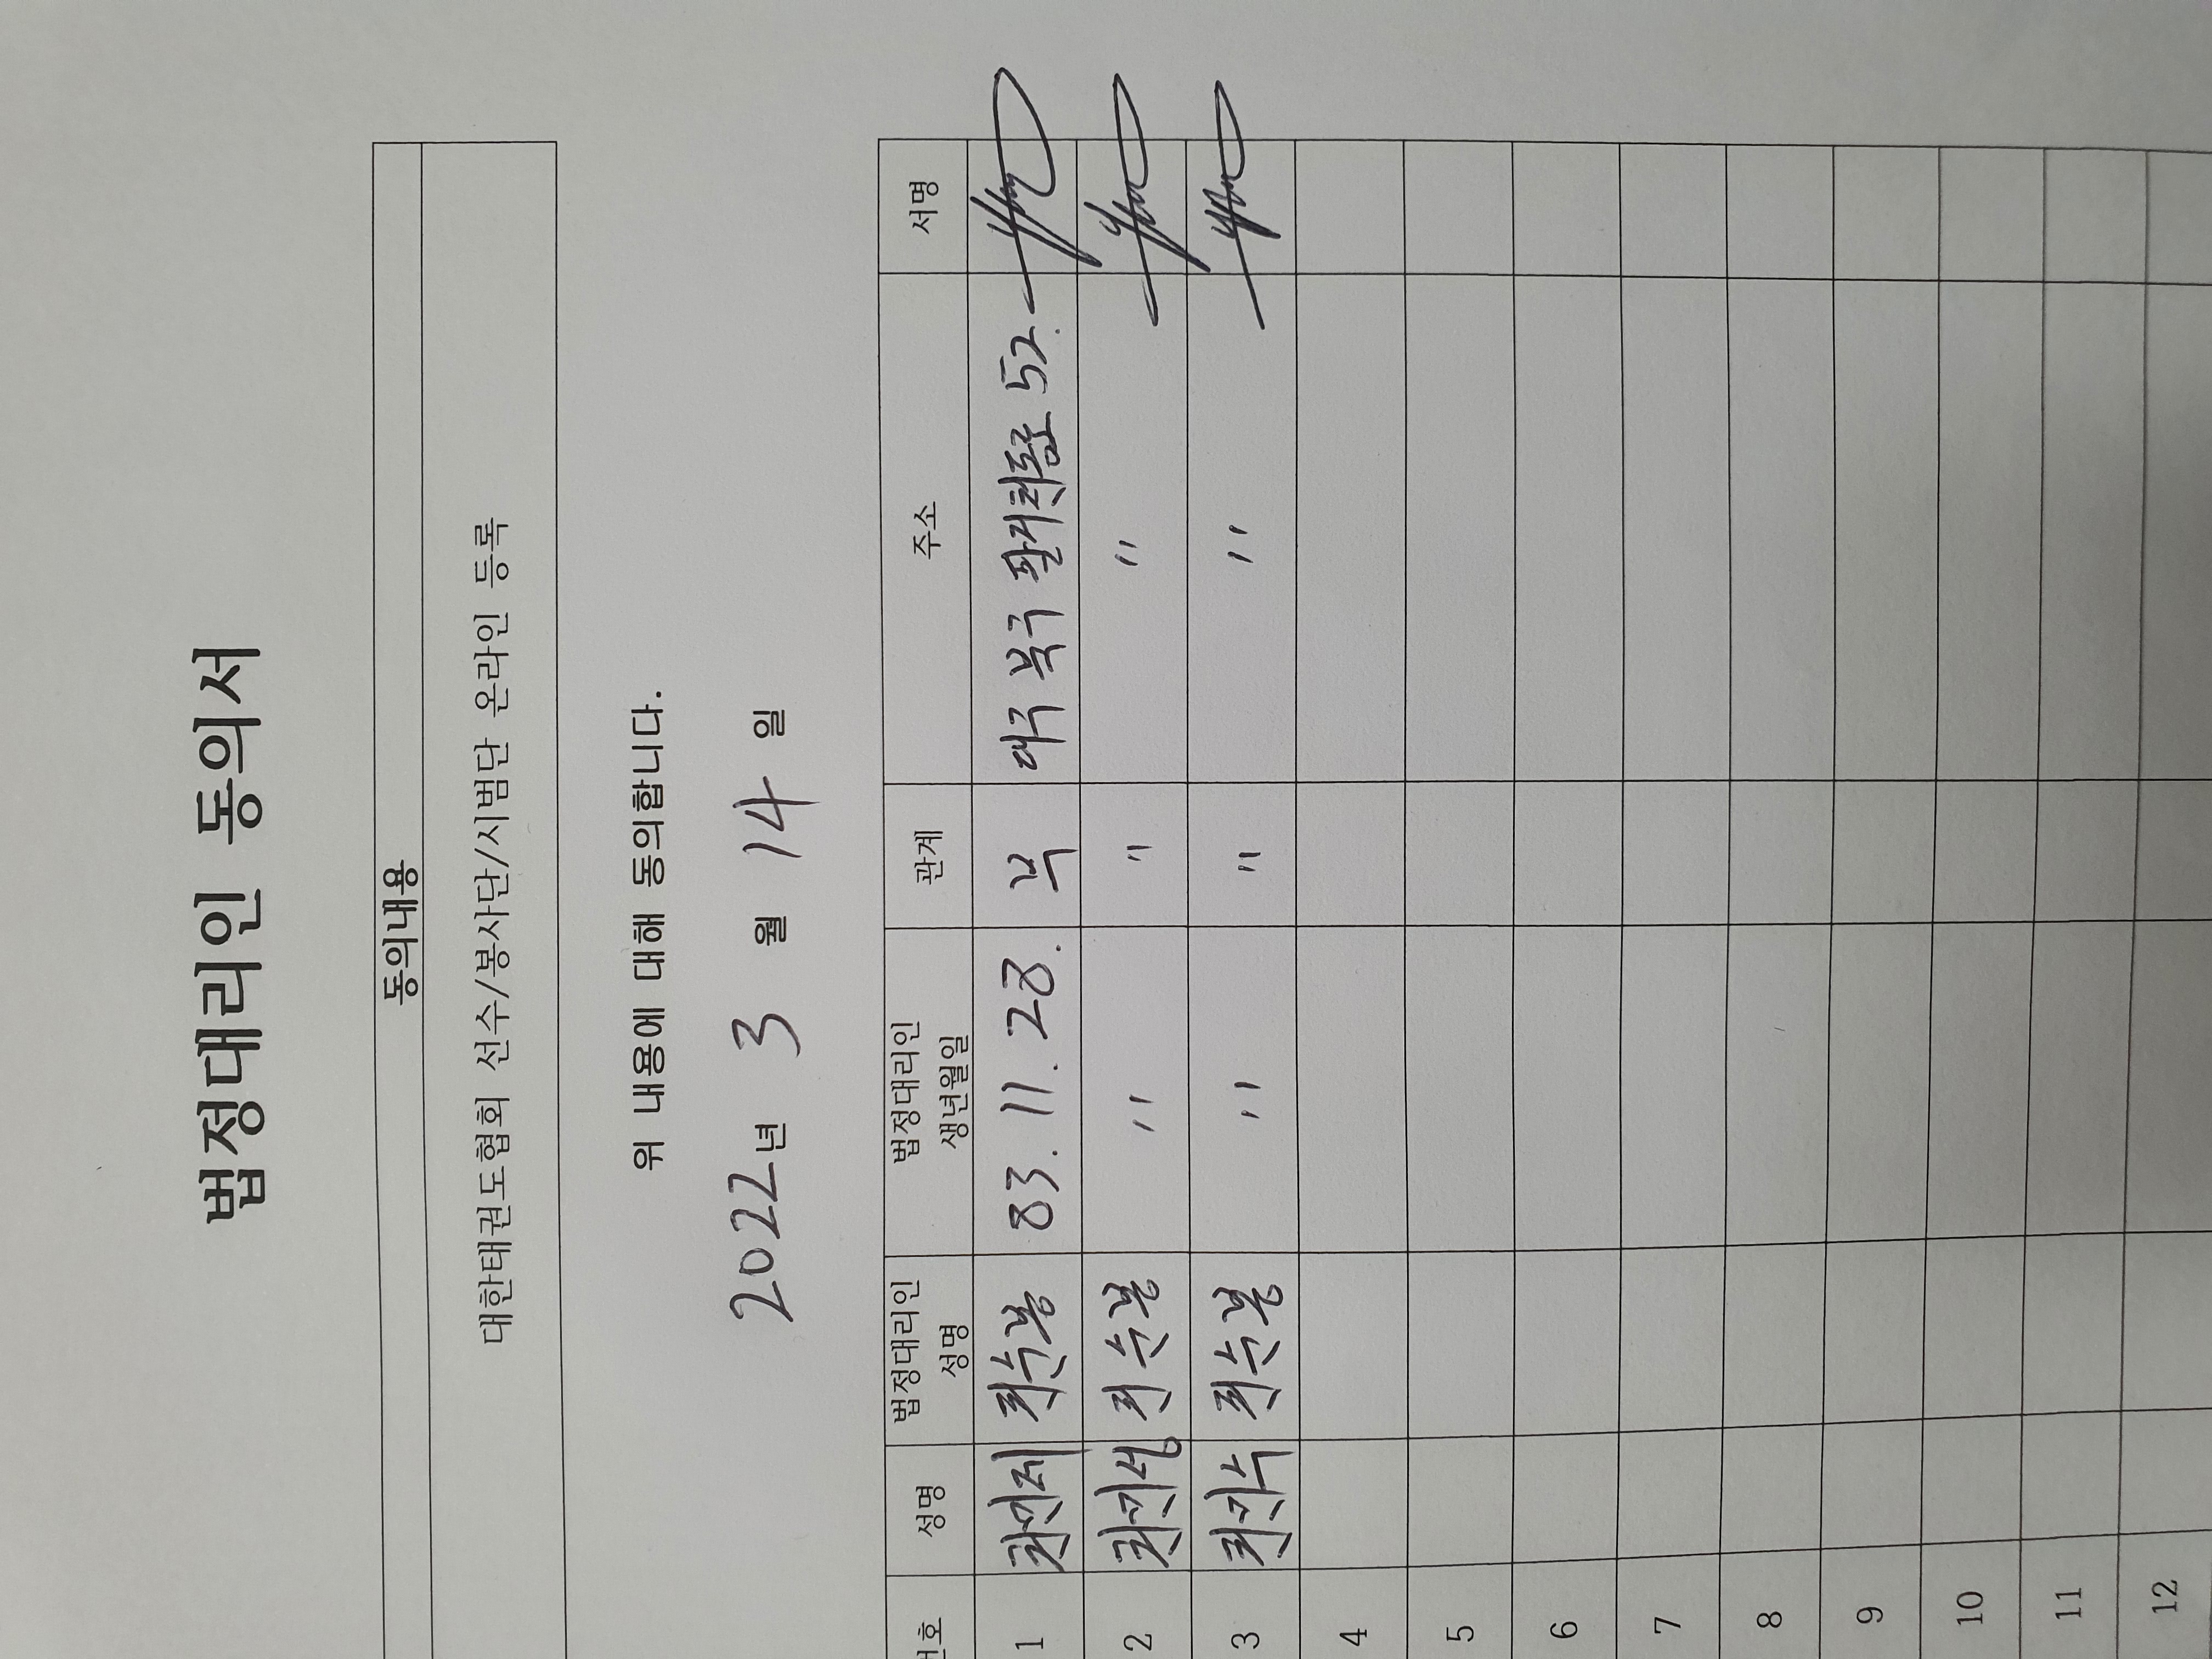 법정대리인 동의서
동의내용
대한태권도협회 선수/봉사단/시범단 온라인 등록
위 내용에 대해 동의합니다.
2022년 3월 14일
번호 성명 법정대리인 성명 법정대리인 생년월일 관계 주소 서명
1 최수봉 83. 11. 28. 부 대구 북구 팔거천동로 52.
2 최수봉 〃 〃 〃
3 최수봉 〃 〃 〃
4
5
6
7
8
9
10
11
12